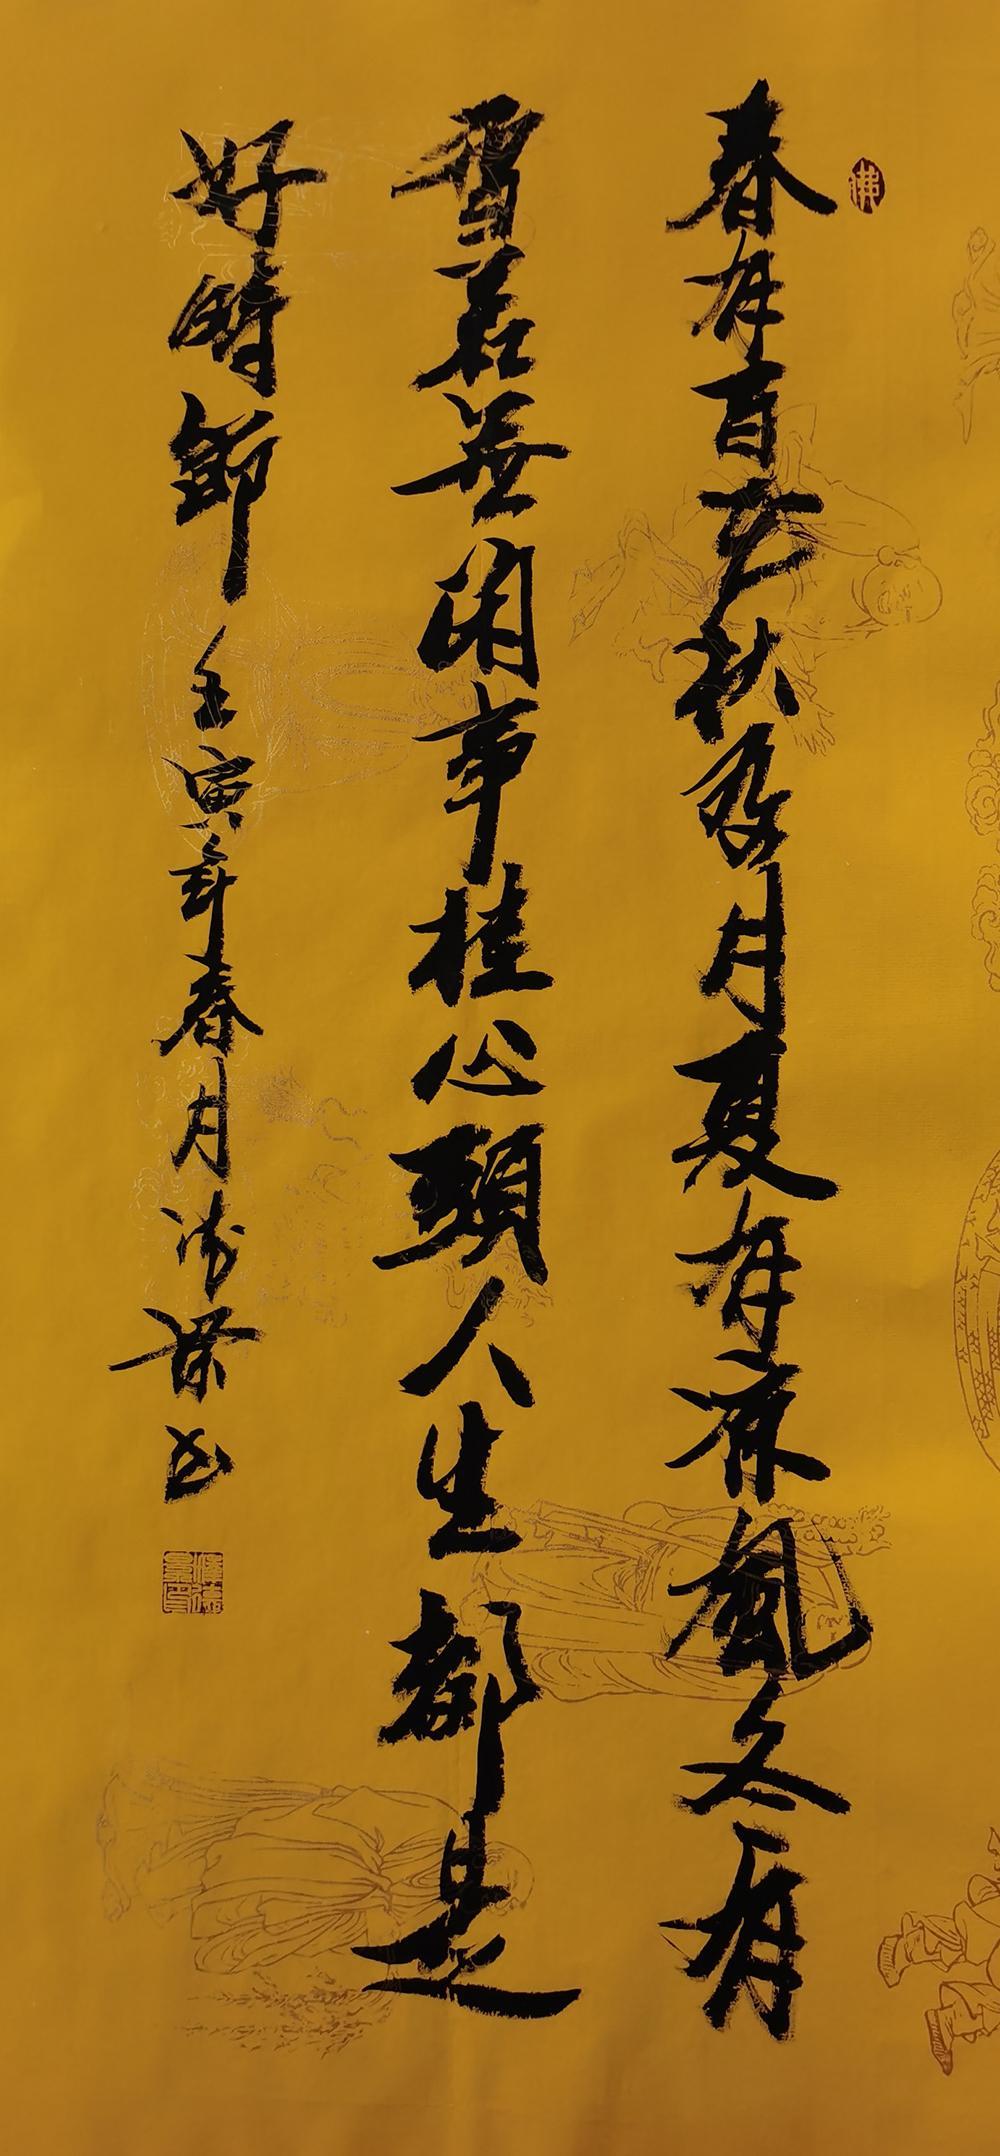 佛
春有百花秋有月夏有涼風冬有
雪若無闲事挂心頭人生都是
好時節 壬寅年春月 书